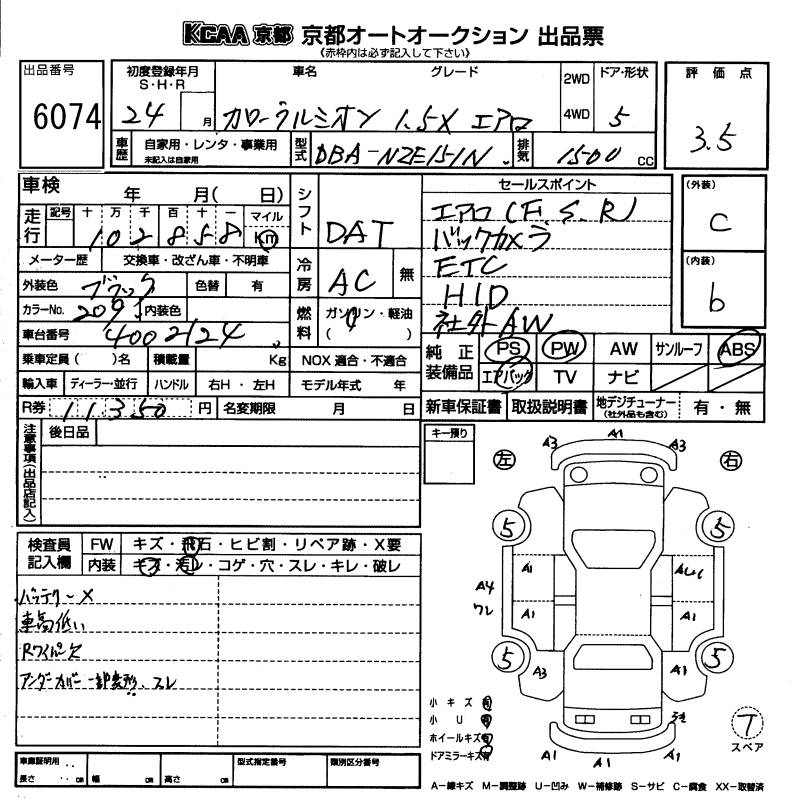 KCAA 京都 京都オートオークション 出品票
(赤枠内は必ず記入して下さい)
出品番号 6074
初度登録年月 S・H・R 24 月
車名 グレード カローラルミオン 1.5X エアロ
2WD 4WD
ドア・形状 5
評価点 3.5
車歴 自家用・レンタ・事業用 未記入は自家用
型式 DBA-NZE151N
排気 1500 CC
車検 年 月( 日)
シフト DAT
セールスポイント
エアロ (F. S. R)
バックカメラ
ETC
HID
社外AW
(外装) C
(内装) b
走行 記号 十 万 千 百 十 一 マイル Km
102858
メーター歴 交換車・改ざん車・不明車
冷房 AC 無
外装色 ブラック 色替 有
カラーNo. 209 内装色
燃料 ガソリン・軽油 ( )
車台番号 4002124
乗車定員( )名 積載量 Kg NOX 適合・不適合
純正装備品 PS PW AW サンルーフ ABS
エアバック TV ナビ
輸入車 ディーラー・並行 ハンドル 右H・左H モデル年式 年
R券 11350 円 名変期限 月 日
新車保証書 取扱説明書 地デジチューナー (社外品も含む) 有・無
注意事項(出品店記入) 後日品
キー預り
左 右
A3 A1 A3
5 5
A1
A4 ワレ
A1 A1
5 5
A3 A1
A1 A1 A1
T スペア
検査員記入欄 FW キズ・飛石・ヒビ割・リペア跡・X要
内装 キズ・汚レ・コゲ・穴・スレ・キレ・破レ
バッテリーX
車高低い
Rワイパー欠
アンダーカバー一部変形、スレ
小キズ 有
小U 有
ホイールキズ 有
ドアミラーキズ 有
車庫証明用 長さ cm 幅 cm 高さ cm
型式指定番号 類別区分番号
A-線キズ M-調整跡 U-凹み W-補修跡 S-サビ C-腐食 XX-取替済